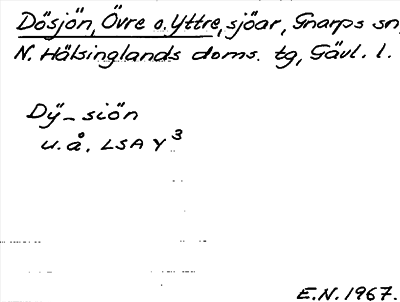 Dösjön, Övre o. Yttre, sjöar, Gnarps sn,
N. Hälsinglands doms. tg, Gävl. l.
Dÿ_ siön
u. å. LSA Y³
E.N. 1967.